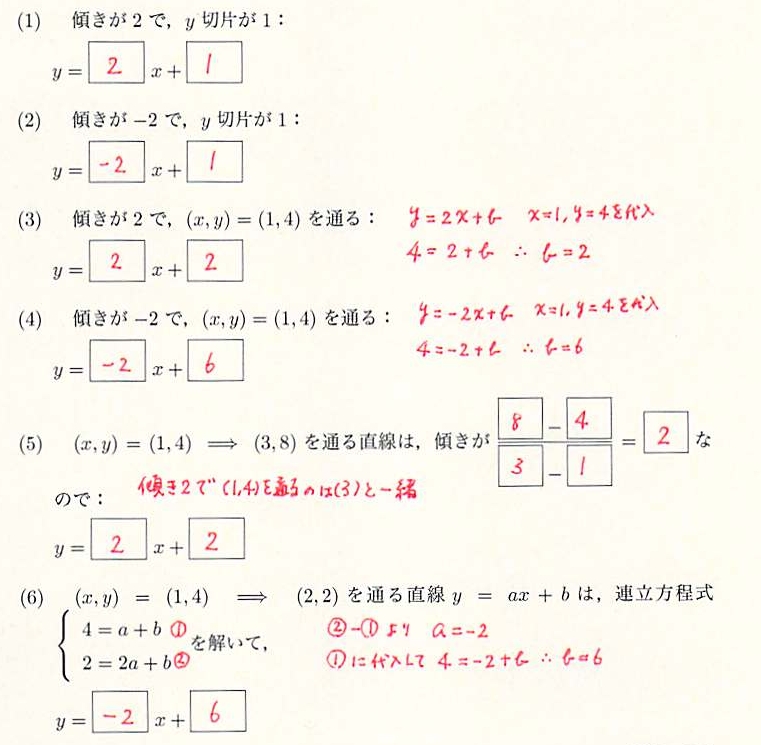 (1) 傾きが 2 で, y 切片が 1 :
y = 2 x + 1
(2) 傾きが −2 で, y 切片が 1 :
y = -2 x + 1
(3) 傾きが 2 で, (x, y) = (1, 4) を通る : y=2x+b x=1, y=4を代入
4=2+b ∴ b=2
y = 2 x + 2
(4) 傾きが −2 で, (x, y) = (1, 4) を通る : y=-2x+b x=1, y=4を代入
4=-2+b ∴ b=6
y = -2 x + 6
(5) (x, y) = (1, 4) ⟹ (3, 8) を通る直線は, 傾きが 8 − 4 / 3 − 1 = 2 な
ので : 傾き2で(1,4)を通るのは(3)と一緒
y = 2 x + 2
(6) (x, y) = (1, 4) ⟹ (2, 2) を通る直線 y = ax + b は, 連立方程式
4 = a + b ① ②-①より a=-2
を解いて,
2 = 2a + b ② ①に代入して 4=-2+b ∴ b=6
y = -2 x + 6